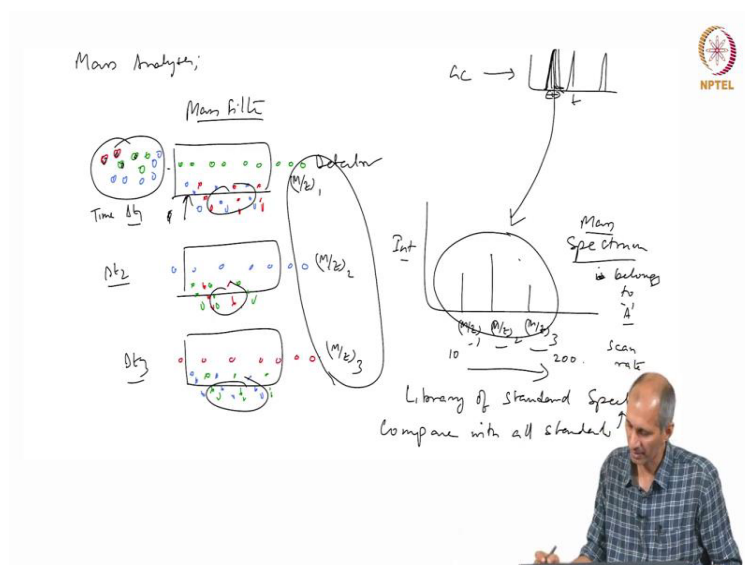 Mass Analyser;
Mass Filter
Detector
(M/Z)1
Time Δt1
Δt2
(M/Z)2
Δt3
(M/Z)3
GC →
t
NPTEL
Int
Mass
Spectrum
is belongs
to
'A'
(M/Z)1 (M/Z)2 (M/Z)3
10 200.
scan
rate
Library of Standard Spect
Compare with all standards